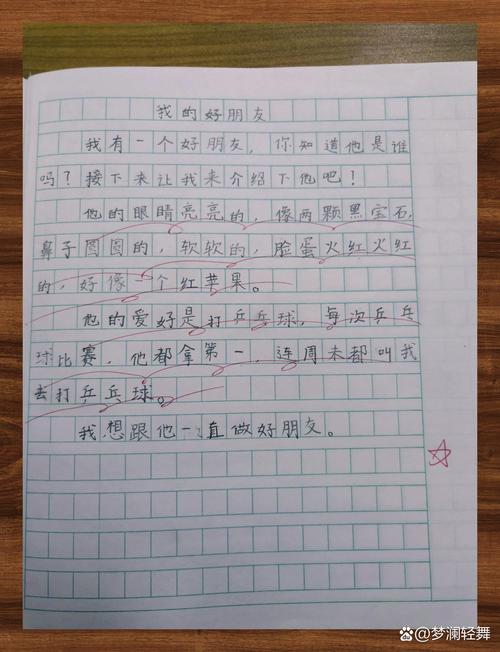 我的好朋友
我有一个好朋友，你知道他是谁
吗？接下来让我来介绍下他吧！
他的眼睛亮亮的，像两颗黑宝石，
鼻子圆圆的，软软的，脸蛋火红火红
的，好像一个红苹果。
他的爱好是打乒乓球，每次乒乓
球比赛，他都拿第一，连周末都叫我
去打乒乓球。
我想跟他一直做好朋友。
百家号/梦澜轻舞